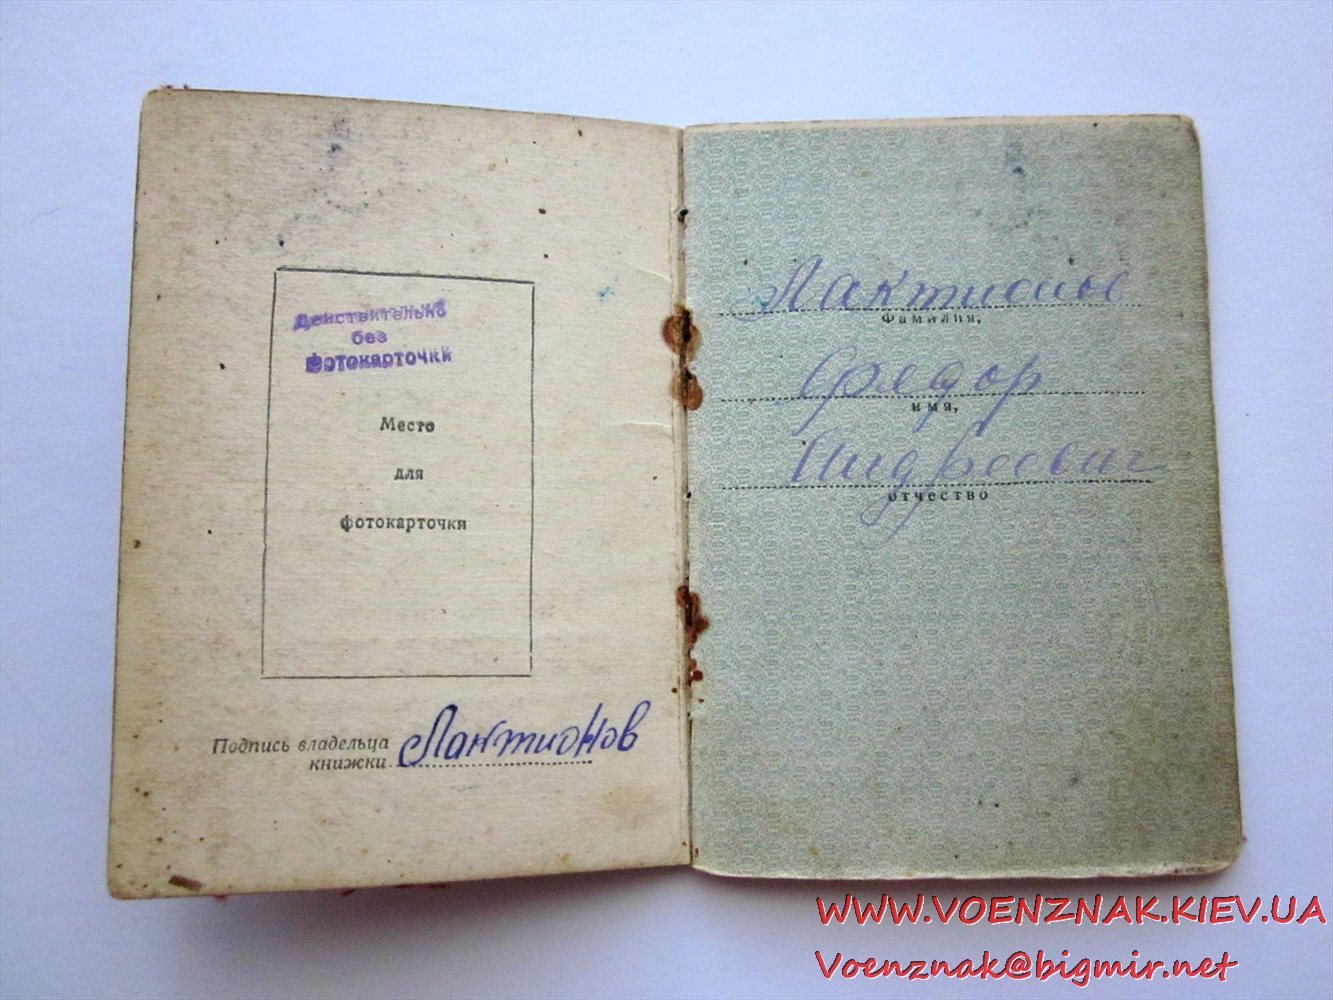 Действительно
без
фотокарточки
Место
для
фотокарточки
Подпись владельца
книжки
Лактионов
Лактионов
Фамилия,
Федор
имя,
Андреевич
отчество
WWW.VOENZNAK.KIEV.UA
Voenznak@bigmir.net